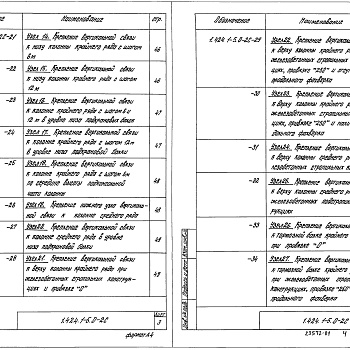 Наименование
стр.
2С-21
Узел 14. Крепление вертикальной связи
к низу колонны крайнего ряда с шагом
6 м
46
-22
Узел 15. Крепление вертикальной связи
к низу колонны крайнего ряда с шагом
12 м
46
-23
Узел 16. Крепление вертикальной связи
к колонне крайнего ряда с шагом 6 и
12 м в уровне низа подкрановых балок
47
-24
Узел 17. Крепление вертикальной связи
к колонне крайнего ряда с шагом 12 м
в уровне низа подкрановой балки
47
-25
Узел 18. Крепление вертикальной связи
к колонне крайнего ряда с шагом 6 м
по середине высоты подкрановой
части колонны
48
-26
Крепление нижнего узла вертикаль-
ной связи к колонне среднего ряда
48
-27
Крепление вертикальной связи
к колонне среднего ряда в уровне
низа подкрановой балки
49
-28
Узел 21. Крепление вертикальной связи
к верху колонны крайнего ряда при
железобетонных стропильных конструк-
циях и привязке "0"
49
1.424.1-5.0-2С
Лист
3
формат А4
Обозначение
Наименование
1.424.1-5.0-2С-29
Узел 22. Крепление
к верху колонны крайнего
железобетонных стропильных
привязке "250" и
продольного фахверка
-30
Узел 23. Крепление
к верху колонны крайнего
железобетонных стропильных
циях, привязке "250" и
дольного фахверка
-31
Узел 24. Крепление вертикальн
к верху колонны среднего
железобетонных стропильных
-32
Узел 25. Крепление вертикаль
к верху колонны среднего
железобетонных подстропиль
рукциях
-33
Узел 26. Крепление вертикаль
к тормозной балке крайнего
при привязке "0"
-34
Узел 27. Крепление вертикальн
к тормозной балке крайнего
при железобетонных
конструкциях, привязке "250"
продольного фахверка
1.424.1-5.0-2С
23572-01 4